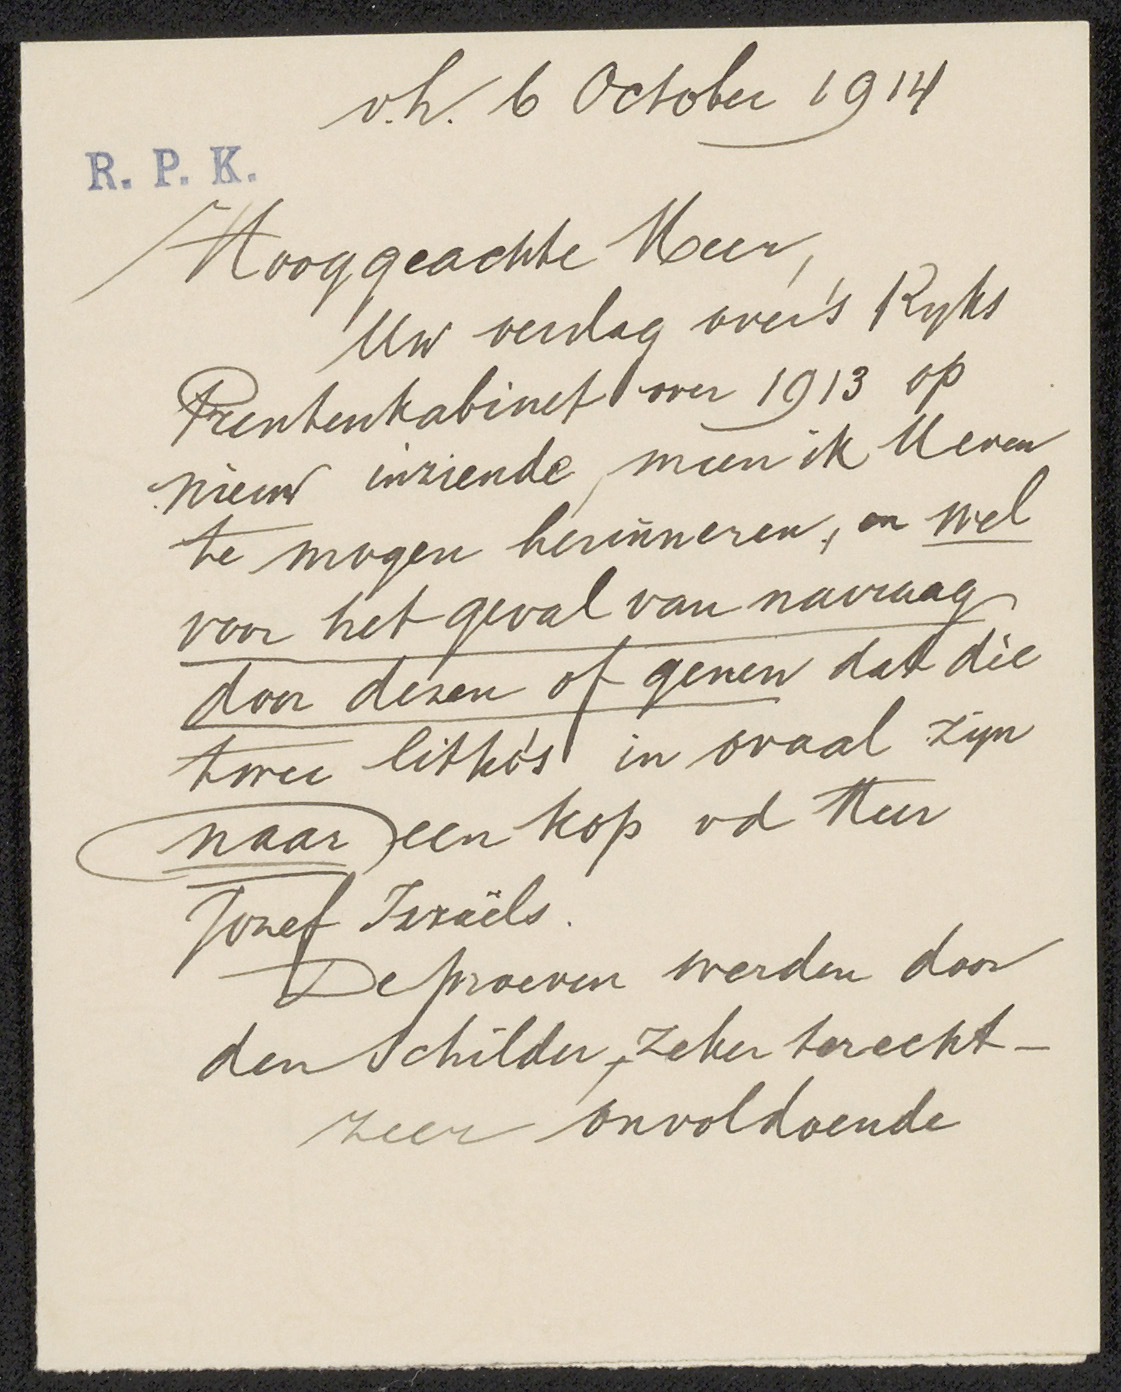 v.h. 6 October 1914
R. P. K.
Hooggeachte Heer,
Uw verslag over's Ryks
Prentenkabinet over 1913 op
nieuw inziende, meen ik U even
te mogen herinneren, en wel
voor het geval van navraag
door dezen of genen dat die
twee litho's in ovaal zijn
naar een kop v d Heer
Jozef Israëls.
De proeven werden door
den Schilder, zeker terecht -
zeer onvoldoende